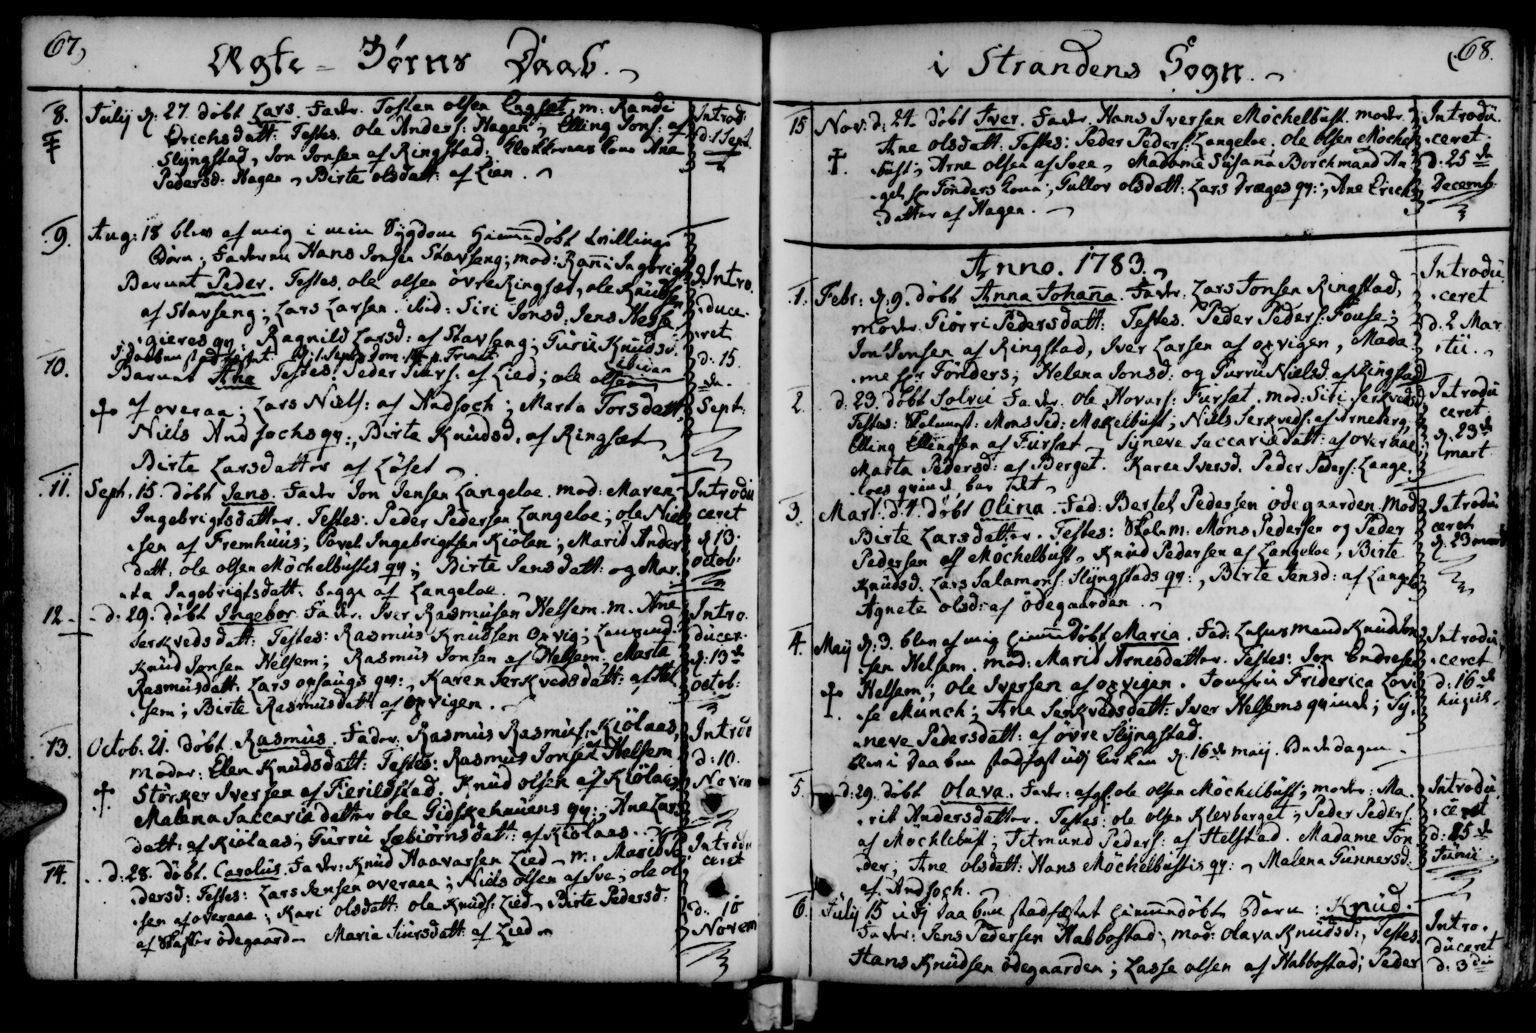 67)
Ægte = Börns Daab.
8. Julij d. 27. döbt Lars. Fader. Tosten olsen Engset, m: Randi
Erichsdatt: Testes. Ole Anders: Hagen, Elling Jons: af
Slyngstad, Jon Jonsen af Ringstad; Ane
Pedersd: Hagen, Birte olsdatt: af Lien.
Introd:
d. 1 Sept.
9. Aug: 18 blev af mig i min Sygdom hiemedöbt tvillinge
Börn; Faderen Hans Jonsen Stavseng; mod: Rani Ingebrigtsd:
Barnet Peder. Testes. ole olsen övre Ringset, ole Knudsen
af Stavseng; Lars Larsen. ibid: Siri Jonsd: Jens Hesse-
gieres qv: Ragnild Larsd: af Stavseng; Guru Knudsd.
Intro.
duce.
ret
d. 15.
Sept:
10. Barnet Ane Testes. Peder Siurs: af Lied; ole olsen
af overaa; Lars Niels: af Andsoch; Marta Torsdatt,
Niels Andsochs qv:, Birte Knudsd. af Ringset
Birte Larsdatter af Löset
11. Sept: 15. döbt Jens. Fader Jon Jensen Langeloe. mod: Maren
Ingebrigtsdatter. Testes. Peder Pedersen Langeloe; ole Niel-
sen af Fremhuus; Povel Ingebrigtsen Kiölen; Marit Anders
datt. ole olsen Möchelbusts qv; Birte Jensdatt: og Mar-
ta Ingebrigtsdatt. begge af Langeloe.
Introdu
ceret
d. 13.
octob:
12. d. 29. döbt Ingebor. Fader. Iver Rasmusen Helsem. m. Ane
Serkvedsdatt: Testes: Rasmus Knudsen opvig;
Knud Jonsen Helsem; Rasmus Jonsen af Helsem. Marta
Rasmusdatt: Lars opsaugs qv:, Karen Serkvedsdatt: af Hel-
sem; Birte Rasmusdatt af opvigen.
Intro.
ducer.
d. 13de
octob:
13. Octob. 21. döbt Rasmus. Fader. Rasmus Rasmus: Kiölaas,
moder: Elen Knudsdatt: Testes: Rasmus Jonsen af Helsem
Störker Iversen af Fierildstad. Knud olsen af Kiölaas
Malena Saccariadatter ole Gidskehaugens qv:, Ane Lars
datt: af Kiölaas, Gurru Sebiörnsdatt: af Kiölaas.
Introd
d: 10.
Novem
14. d: 28. döbt. Carolus. Fader. Knud Haavarsen Lied, m: Marit
dersd: Testes: Lars Jensen overaaa; Niels olsen af Sve; ole ol
sen af overaae; Kari olsdatt: ole Knuds: Lied, Birte Pedersd:
af ödegaard. Maria Siursdatt: af Lied
Introdu
ceret
d: 10
Novem

68.
i Strandens Sogn.
15 Nov: d: 24. döbt Iver. Fader. Hans Iversen Möchelbust. moder.
Ane olsdatt: Testes: Peder Peders: Langeloe, Ole olsen Möchel
bust; Arne olsen af Svee, Madame Susana Borchmand An-
gel, Tönders Kone; Gullov olsdatt: Lars Dræges qv:, Ane Erichs
datter af Hagen.
Introdu
ceret
d: 25de
Decemb
Anno. 1783.
1. Febr: d. 9. döbt Anna Johana. Fader. Lars Jonsen Ringstad,
moder. Giörri Pedersdatt: Testes. Peder Peders: Fouse;
Jon Jonsen af Ringstad, Iver Larsen af opvigen, Mada-
me Tönders; Helena Jonsd: og Gurru Nielsd. af Ringstad
Introdu
ceret
d: 2 Mar
tii.
2. d: 23. döbt Solvu Fader. Ole Hovars: Furset. mod: Siri Serkvedsd
Testes: Mons Ped: Mökelbust, Niels Serkveds: af Arneberg,
Elling Ellingsen af Furset, Syneve Saccariadatt: af overaae,
Marta Pedersd: af Berget. Karen Iversd. Peder Peders: Lange-
loes qvinde bar det
Introdu
ceret
d. 23de
mart
3. Mart: d: 7. döbt Olina. Fad: Bertel Pedersen ödegaarden. Mod
Birte Larsdatter. Testes: Skolem: Mons Pedersen og Peder
Pedersen af Mochelbust. Knud Pedersen af Langeloe, Birte
Knudsd: Lars Salamons: Slyngstads qv:, Birte Jensd: af Langeloe
Agnete olsd: af ödegaarden.
Introdu
ceret
d. 23 mart
4. Maij d: 3. blev af mig hiemedöbt Maria. Fad: Lensmand Knud Jon
sen Helsem. mod: Marit Arnesdatter. Testes: Jon Endresen
Helsem; Ole Iversen af opvigen. Jomfru Friderica Lovi-
se Munch; Ane Serkvedsdatt: Iver Helsems qvinde; Sy-
neve Pedersdatt: af övre Slyngstad.
blev i Daaben stadfæst udj Kirken d. 16de maij. Bededagen.
Introdu
ceret
d: 16de
5. d: 29. döbt Olava. Fader: ole olsen Möchelbust; moder: Ma-
rit Andersdatter. Testes: ole olsen Klevberget; Peder Peders:
af Möchlebust; Sitmund Peders: af Helstad. Madame Tön-
der; Ane olsdatt: Hans Möchelbusts qv:, Malena Gunnersd:
af Andsoch.
Introdu
ceret
d: 15de
Junii
6. Julij 15 udj Daaben stadfæstet hiemedöbt Barn: Knud.
Fader: Jens Pedersen Habbostad; mod: Olava Knudsd:, Testes
Hans Knudsen ödegaarden; Lasse olsen af Habbostad; Peder
Intro.
duceret